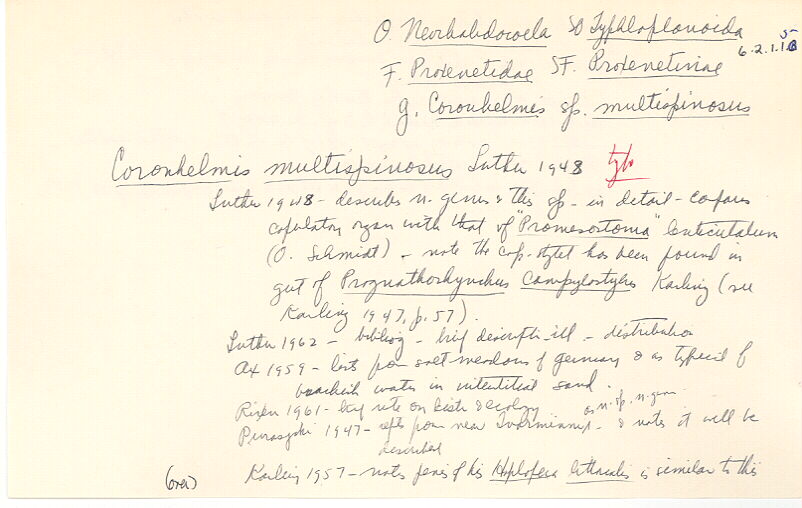 O. Neorhabdocoela SO Typhloplanoida
6.2.1.1.8 5
F. Proxenetidae SF. Proxenetinae
g. Coronhelmis sp. multispinosus
Coronhelmis multispinosus Luther 1948 type
Luther 1948 - describes n. genus & this sp - in detail - compares
copulatory organ with that of "Promesostoma" lenticulatum
(O. Schmidt) - note the cop. stylet has been found in
gut of Prognathorhynchus campylostylus Karling (see
Karling 1947, p. 57).
Luther 1962 - bibliog - brief descript - ill - distribution
Ax 1959 - lists from salt meadows of Germany & as typical of
brackish water in interstitial sand.
Rixen 1961 - brief note on distr & ecology
as n. sp. n. gen.
1947 - repts from near Tvärminne - & notes it will be
described
Karling 1957 - notes penis of his Hoplopera littoralis is similar to this
(over)